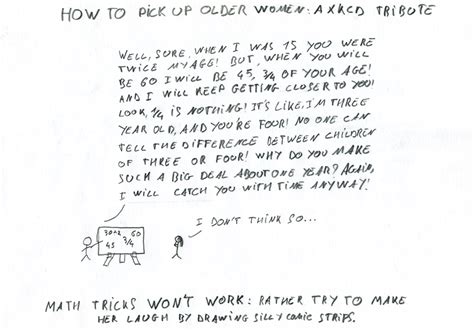 HOW TO PICK UP OLDER WOMEN: A XKCD TRIBUTE
WELL, SURE, WHEN I WAS 15 YOU WERE
TWICE MY AGE! BUT, WHEN YOU WILL
BE 60 I WILL BE 45, 3/4 OF YOUR AGE!
AND I WILL KEEP GETTING CLOSER TO YOU!
LOOK, 1/4 IS NOTHING! IT'S LIKE, I'M THREE
YEAR OLD, AND YOU'RE FOUR! NO ONE CAN
TELL THE DIFFERENCE BETWEEN CHILDREN
OF THREE OR FOUR! WHY DO YOU MAKE
SUCH A BIG DEAL ABOUT ONE YEAR? AGAIN,
I WILL CATCH YOU WITH TIME ANYWAY!
I DON'T THINK SO...
60
45 3/4
MATH TRICKS WON'T WORK: RATHER TRY TO MAKE
HER LAUGH BY DRAWING SILLY COMIC STRIPS.